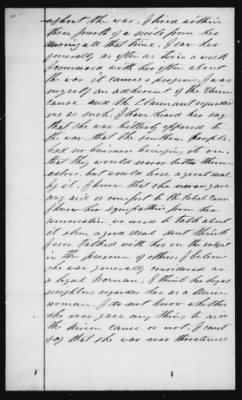 about the war. I lived within
three fourths of a mile from her
during all that time. I saw her
generally as often as twice a week
I conversed with her often about
the war it causes & progress. I was
myself an adherent of the Union
cause. and the Claimant regarded
me as such. I then heard her say
that she was bitterly opposed to
the war. that the Southern people
had no business bringing it on,
that they would never better them-
selves. but would lose a great deal
by it. I know that she never gave
any aid or comfort to the rebel cause
I knew her sympathies from her
conversation we used to talk about
it alone a good deal. dont think
I ever talked with her on the subject
in the presence of others. I believe
she was generally considered as
a loyal woman, I think her loyal
neighbors regarded her as a Union
woman. I do not know whether
she ever gave any thing to aid
the Union cause or not. I cant
say that she was ever threatened